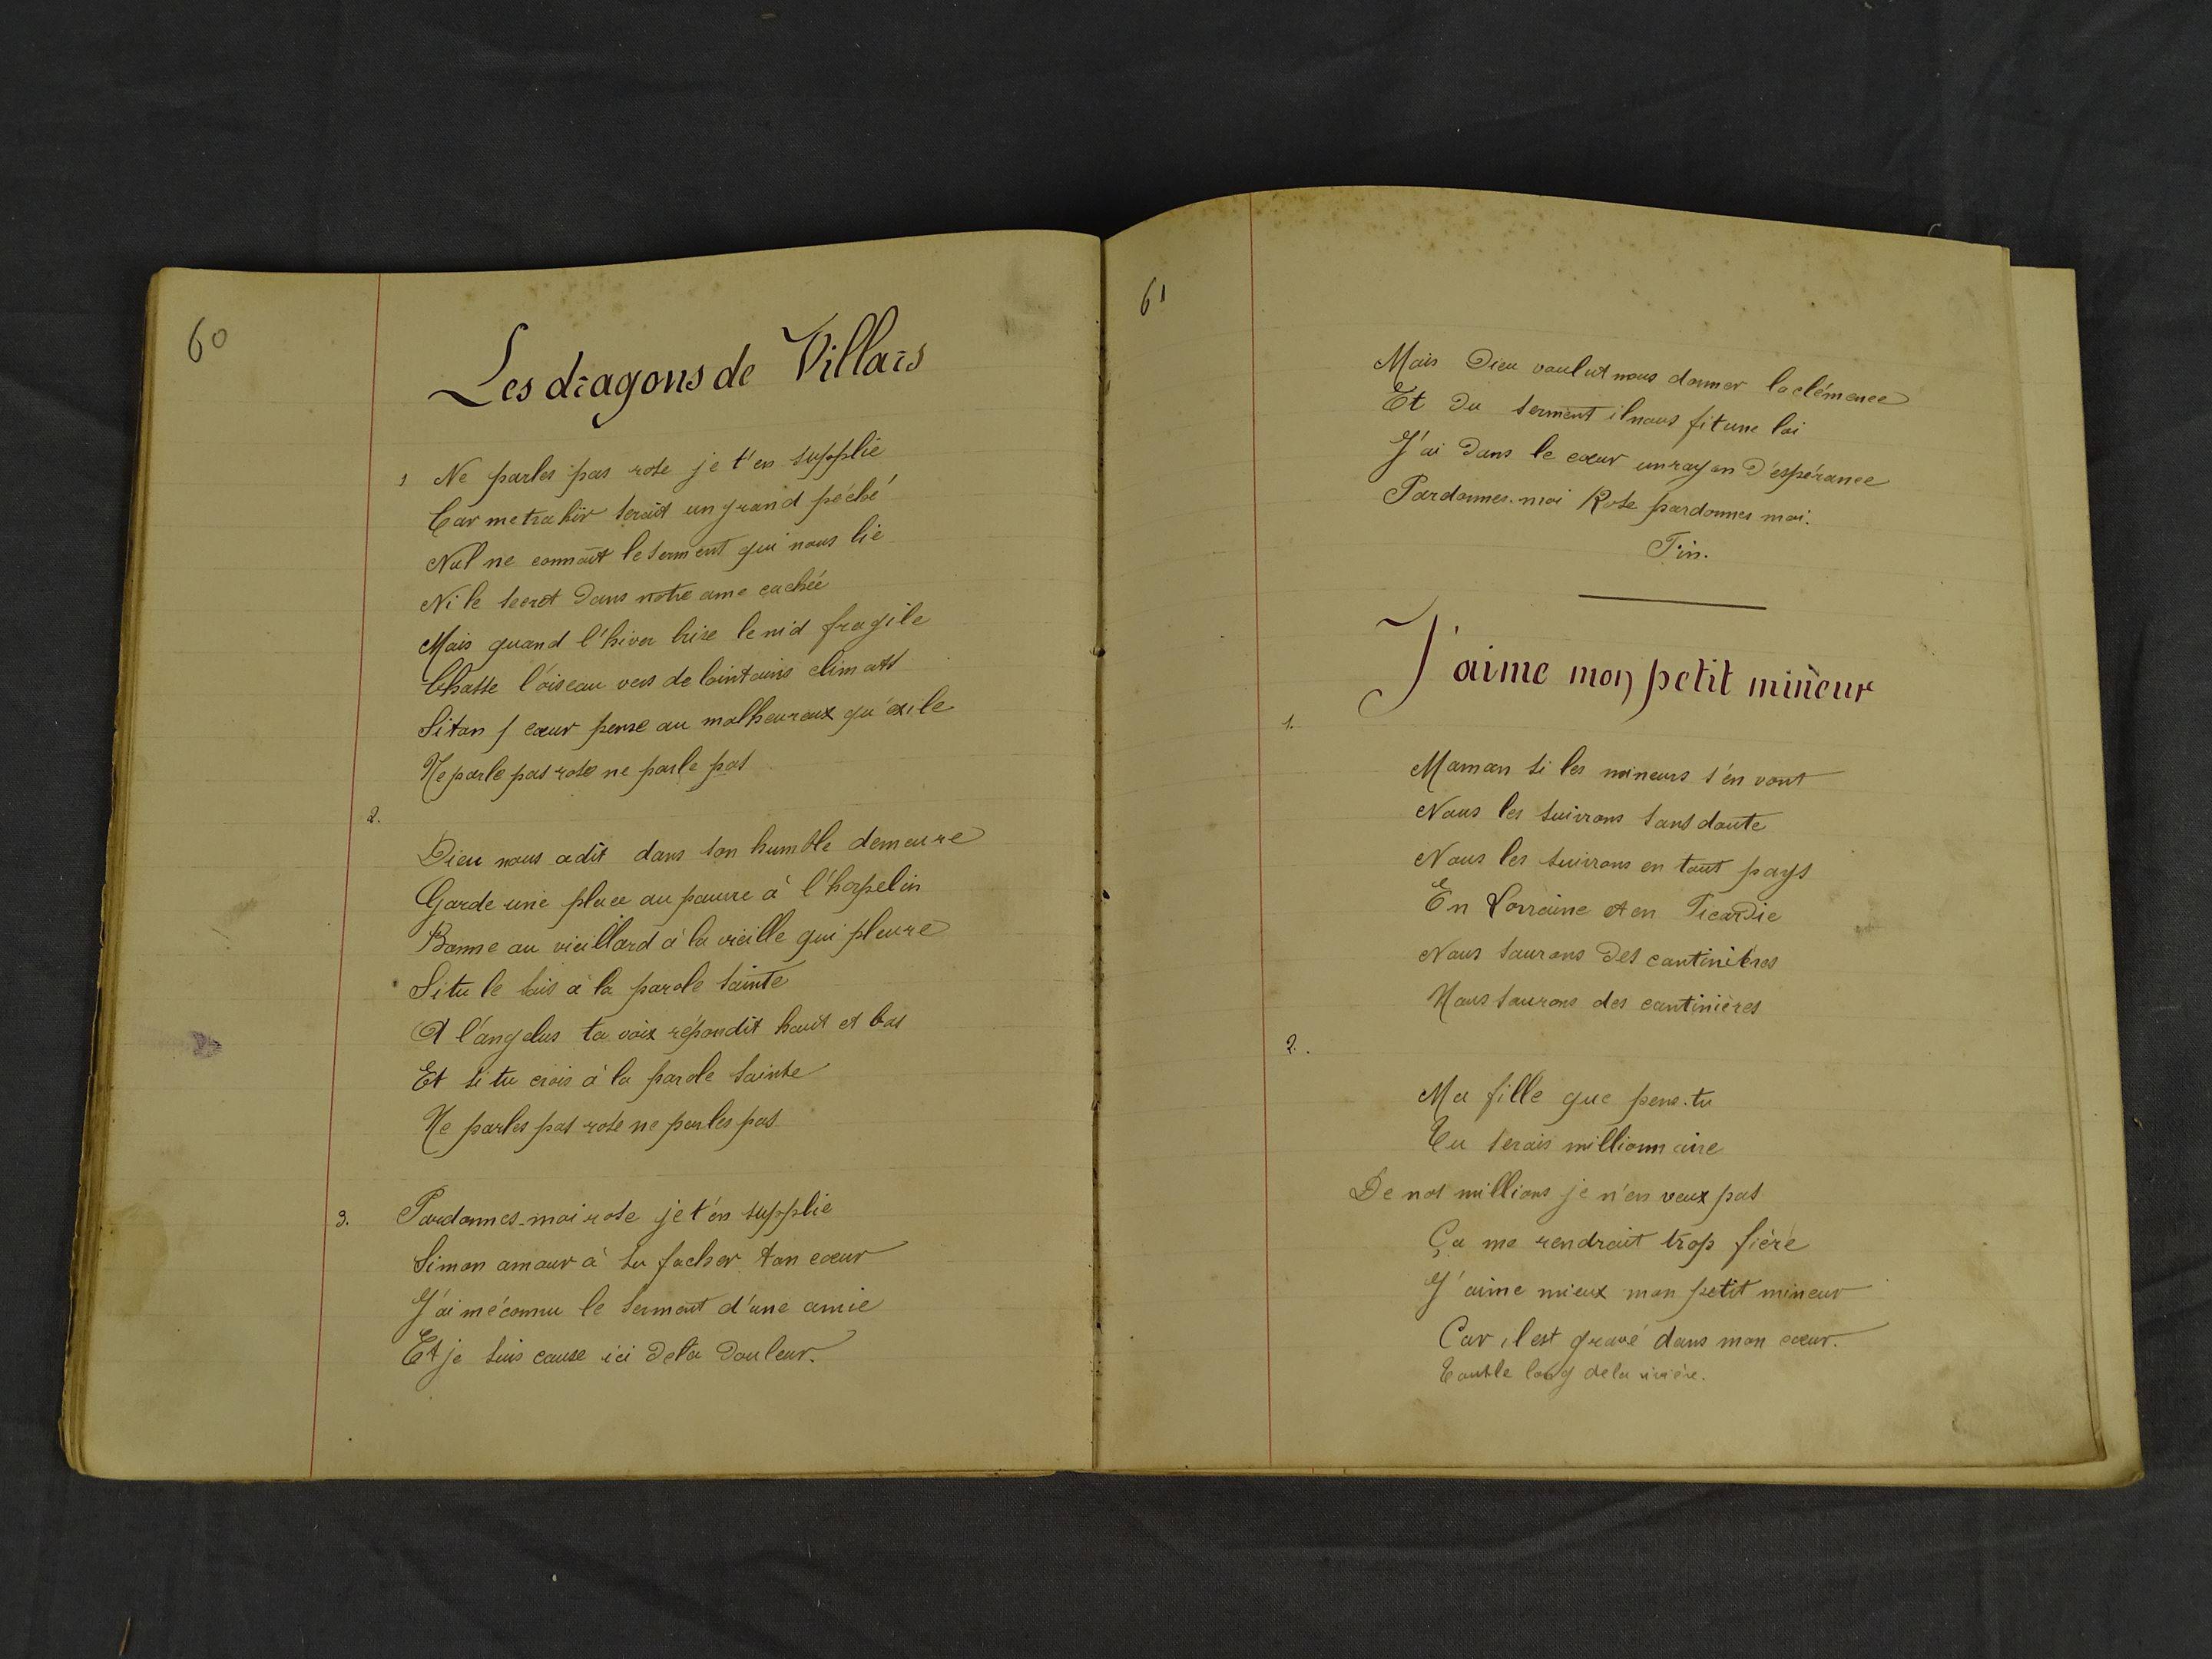 60
Les dragons de Villars
1 Ne parles pas rose je t'en supplie
Car me trahir serait un grand péché
Nul ne connaît le serment qui nous lie
Ni le secret dans notre ame cachée
Mais quand l'hiver brise le nid fragile
Chasse l'oiseau vers de lointains climats
Si ton cœur pense au malheureux qu'exile
Ne parle pas rose ne parle pas
2.
Dieu nous a dit dans ton humble demeure
Garde une place au pauvre à l'horpelin
Bonne au vieillard à la vieille qui pleure
Si tu le sais à la parole sainte
A l'angelus ta voix répondit haut et bas
Et si tu crois à la parole sainte
Ne parles pas rose ne parles pas
3. Pardonnes-moi rose je t'en supplie
Si mon amour à su facher ton cœur
J'ai méconnu le serment d'une amie
Et je suis cause ici de ta douleur.
61
Mais Dieu voulut nous donner la clémence
Et du serment il nous fit une loi
J'ai dans le cœur un rayon d'espérance
Pardonnes-moi Rose pardonnes moi.
Fin.
J'aime mon petit mineur
1.
Maman si les mineurs s'en vont
Nous les suivrons sans doute
Nous les suivrons en tout pays
En Lorraine et en Picardie
Nous saurons des cantinières
Nous saurons des cantinières
2.
Ma fille que pens-tu
Tu serais millionnaire
De nos millions je n'en veux pas
Ça me rendrait trop fière
J'aime mieux mon petit mineur
Car il est gravé dans mon cœur.
Tout le long de la rivière.